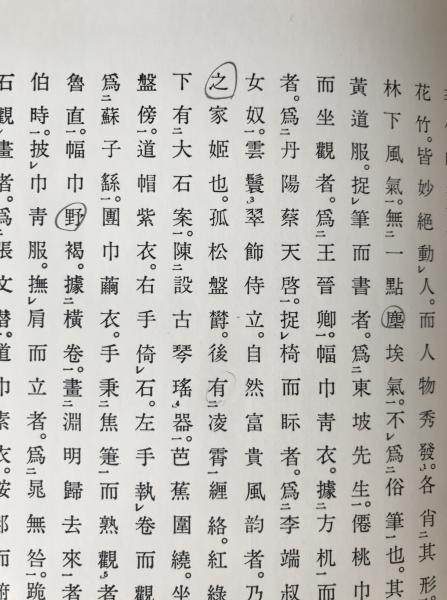 花竹。皆妙絶動㆑人。而人物秀發。各肖㆓其形
林下風氣㆒。無㆓一點塵埃氣㆒。不㆑爲㆓俗筆㆒也。其
黃道服。捉㆑筆而書者。爲㆓東坡先生㆒。僊桃巾
而坐觀者。爲㆓王晉卿㆒。幅巾靑衣。據㆓方机㆒而
者。爲㆓丹陽蔡天啓㆒。捉㆑椅而眎者。爲㆓李端叔
女奴。雲鬟翠飾侍立。自然富貴風韵者。乃
之家姬也。孤松盤欝。後有㆓凌霄㆒纒絡。紅綠
下有㆓大石案㆒。陳㆓設古琴瑤器㆒。芭蕉圍繞。坐
盤傍㆒。道帽紫衣。右手倚㆑石。左手執㆑卷而觀
爲㆓蘇子繇㆒。團巾繭衣。手秉㆓焦箑㆒而熟觀者
魯直㆒。幅巾野褐。據㆓橫卷㆒。畫㆓淵明歸去來㆒者
伯時㆒。披㆑巾靑服。撫㆑肩而立者。爲㆓晁無咎㆒。跪
石觀㆑畫者。爲㆓張文潛㆒。道巾素衣。按而俯